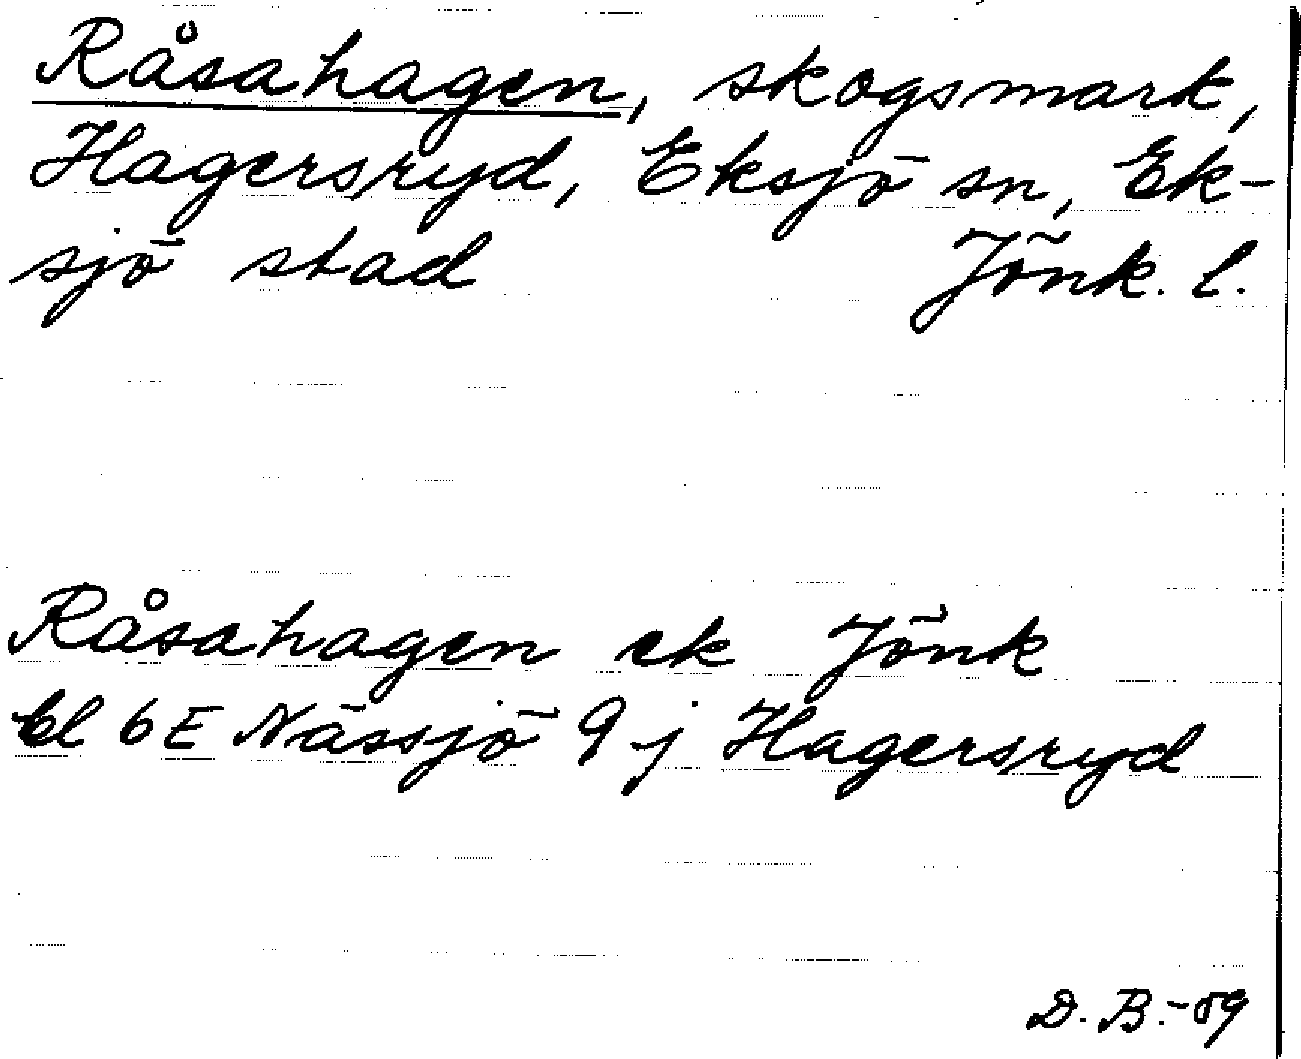 Råsahagen, skogsmark,
Hagersryd, Eksjö sn, Ek-
sjö stad Jönk. l.
Råsahagen ek Jönk
bl 6E Nässjö 9j Hagersryd
D. B.-59